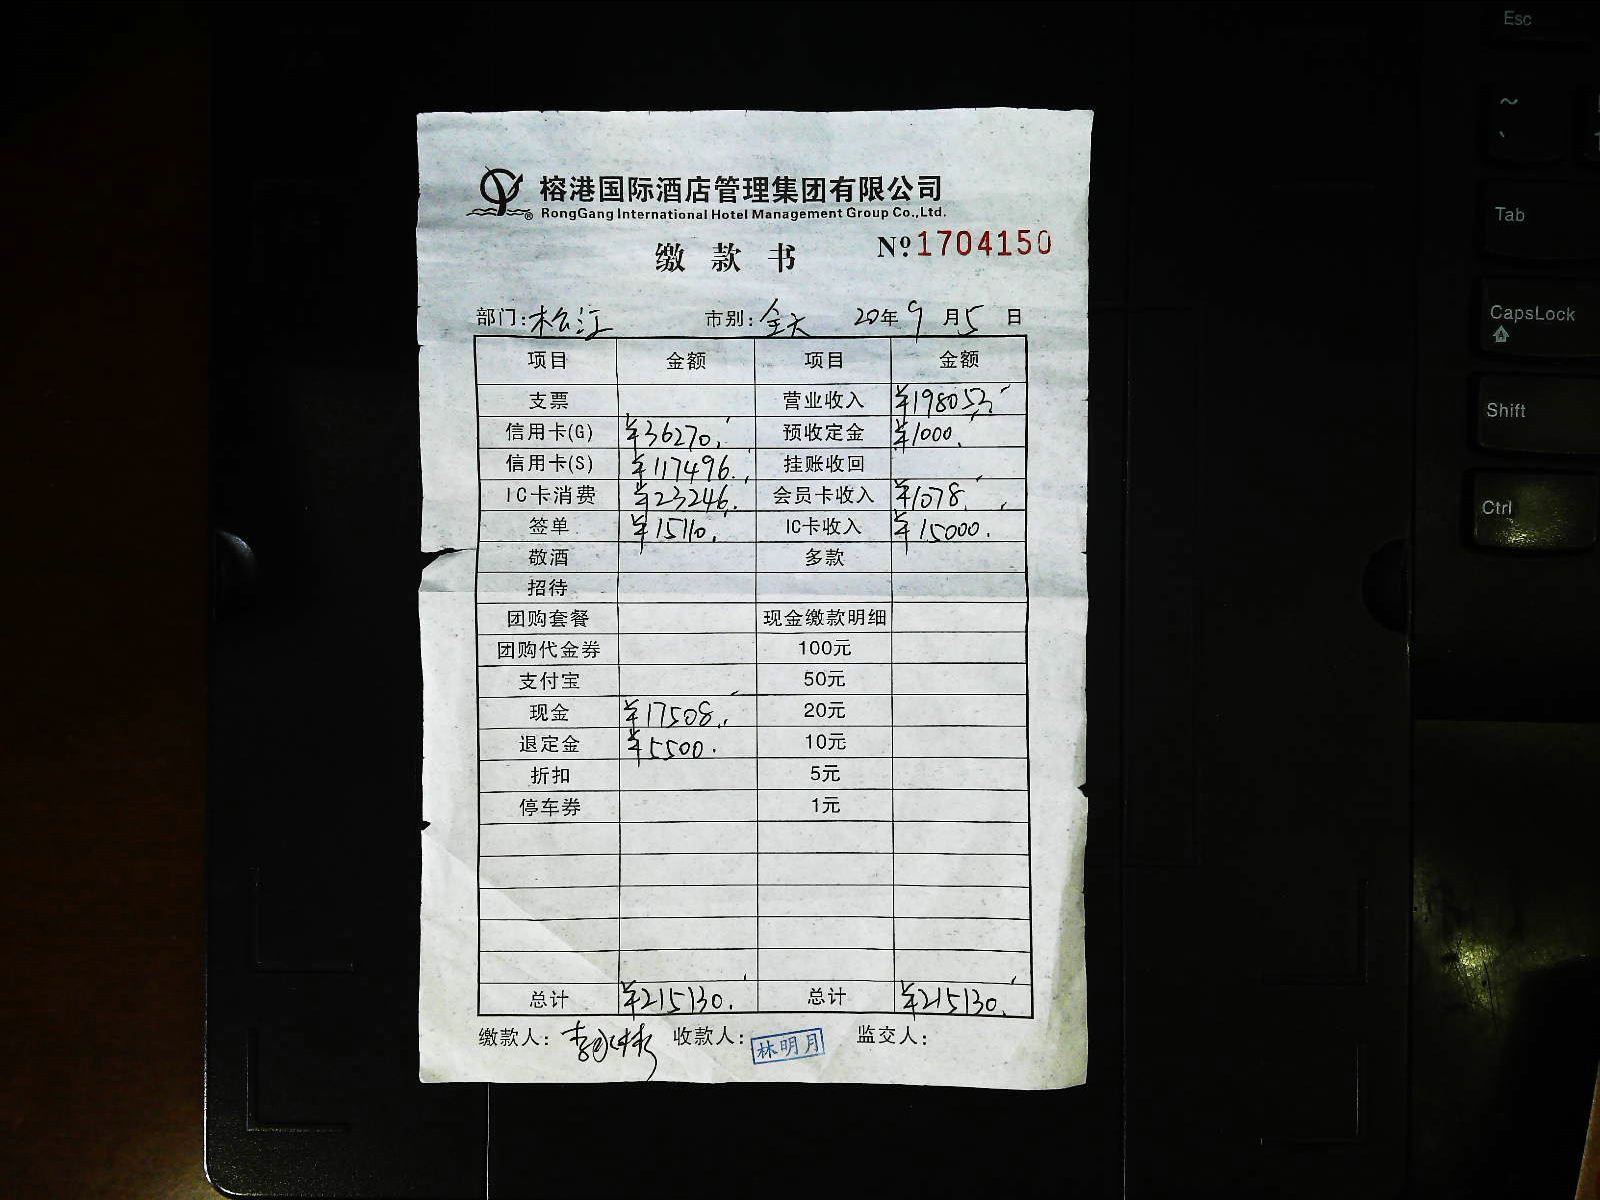 榕港国际酒店管理集团有限公司
RongGang International Hotel Management Group Co.,Ltd.
缴款书 Nº 1704150
部门: 松江 市别: 全天 20年 9月 5日
项目 金额 项目 金额
支票 营业收入 ¥198052.
信用卡(G) ¥36270. 预收定金 ¥1000.
信用卡(S) ¥117496. 挂账收回
IC卡消费 ¥23246. 会员卡收入 ¥1078.
签单 ¥15110. IC卡收入 ¥15000.
敬酒 多款
招待
团购套餐 现金缴款明细
团购代金券 100元
支付宝 50元
现金 ¥17508. 20元
退定金 ¥5500. 10元
折扣 5元
停车券 1元
总计 ¥215130. 总计 ¥215130.
缴款人: 收款人: 林明月 监交人:
Esc
~
`
Tab
CapsLock
Shift
Ctrl